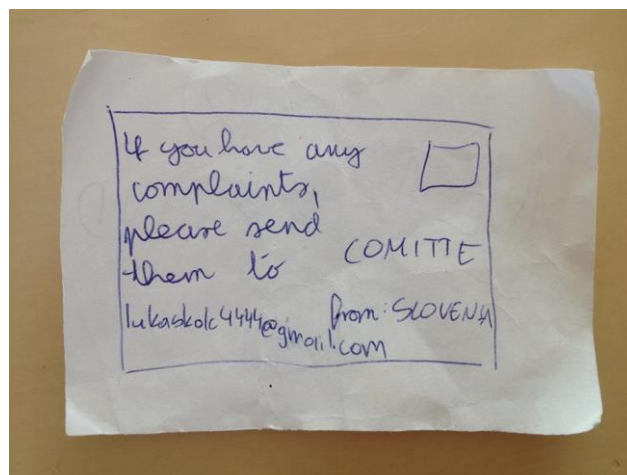 If you have any
complaints,
please send
them to
COMITTE
lukaskolc4444@gmail.com
from: SLOVENIA